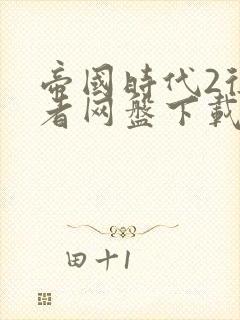 帝國時代2征
者网盘下載
田十1